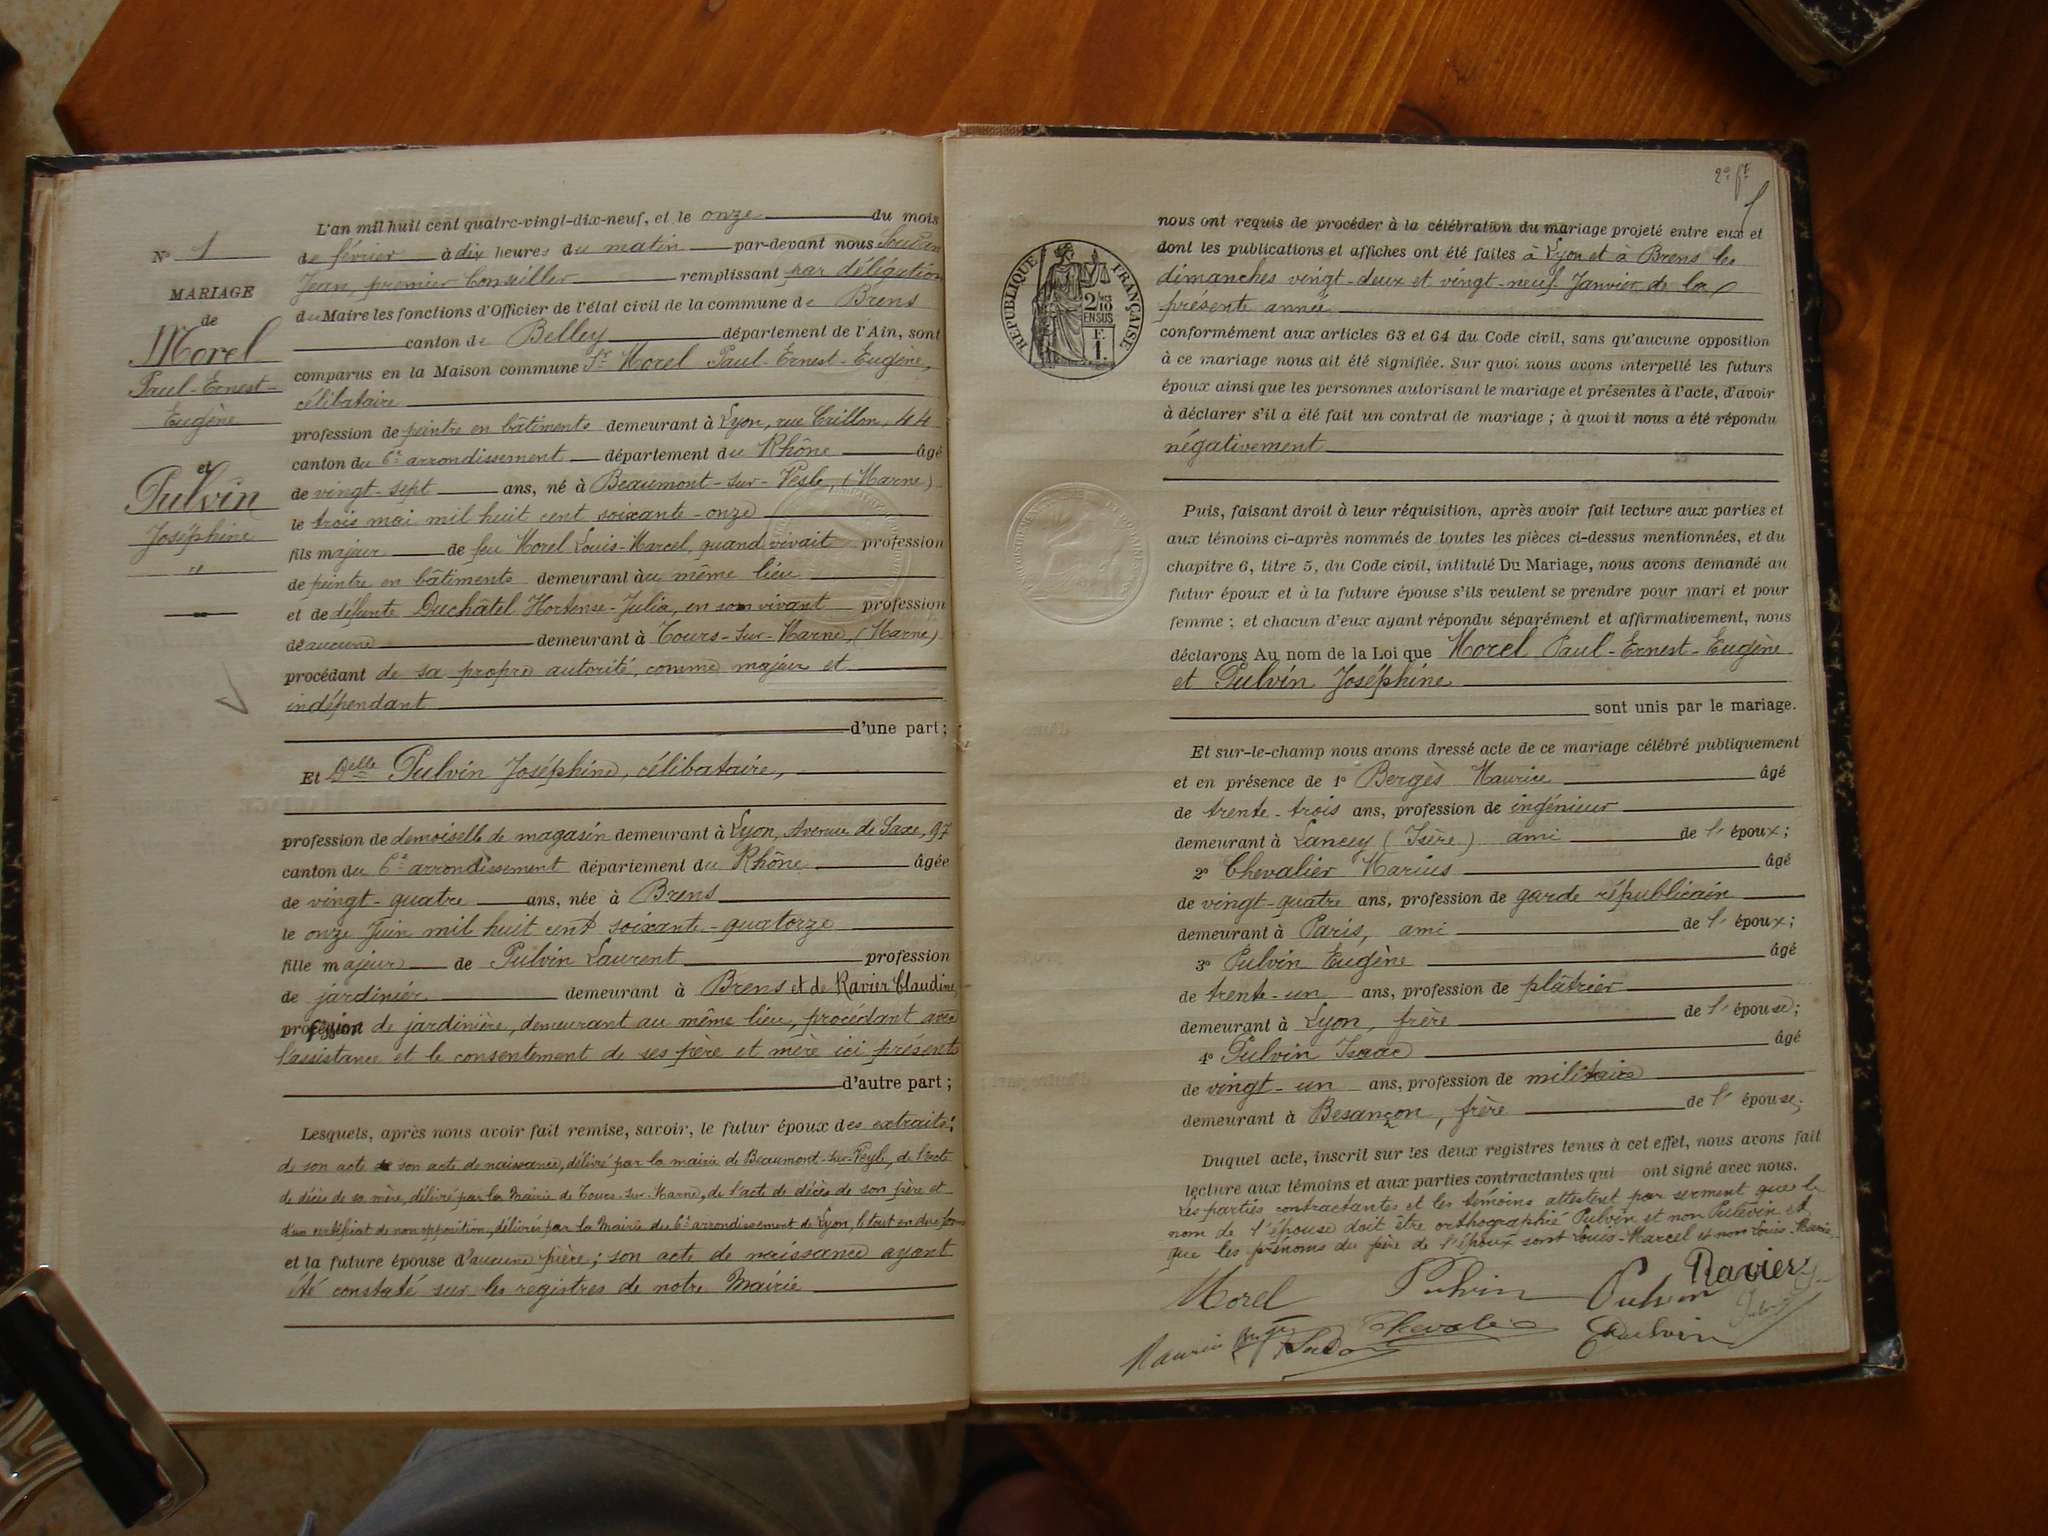 N° 1
MARIAGE
de
Morel
Paul-Ernest-
Eugène
et
Pulvin
Joséphine
L'an mil huit cent quatre-vingt-dix-neuf, et le onze du mois
de février à dix heures du matin par-devant nous
Jean, premier Conseiller remplissant par délégation
du Maire les fonctions d'Officier de l'état civil de la commune de Brens
canton de Belley département de l'Ain, sont
comparus en la Maison commune Sr Morel Paul-Ernest-Eugène,
célibataire
profession de peintre en bâtiments demeurant à Lyon, rue Crillon, 44
canton du 6e arrondissement département du Rhône âgé
de vingt-sept ans, né à Beaumont-sur-Vesle, (Marne)
le trois mai mil huit cent soixante-onze
fils majeur de feu Morel Louis-Marcel, quand vivait profession
de peintre en bâtiments demeurant au même lieu
et de défunte Duchâtel Hortense-Julia, en son vivant profession
de aucune demeurant à Tours-sur-Marne, (Marne)
procédant de sa propre autorité, comme majeur et
indépendant
d'une part;
Et Delle Pulvin Joséphine, célibataire,
profession de demoiselle de magasin demeurant à Lyon, Avenue de Saxe, 97
canton du 6e arrondissement département du Rhône âgée
de vingt-quatre ans, née à Brens
le onze Juin mil huit cent soixante-quatorze
fille majeure de Pulvin Laurent profession
de jardinier demeurant à Brens et de Ravier Claudine,
profession de jardinière, demeurant au même lieu, procédant avec
l'assistance et le consentement de ses père et mère ici présents
d'autre part;
Lesquels, après nous avoir fait remise, savoir, le futur époux des extraits:
de son acte de son acte de naissance, délivré par la mairie de Beaumont-sur-Vesle, de l'acte
de décès de sa mère, délivré par la Mairie de Tours-sur-Marne, de l'acte de décès de son père et
d'un certificat de non opposition, délivrés par la Mairie du 6e arrondissement de Lyon, le tout en due forme
et la future épouse d'aucune pièce; son acte de naissance ayant
été constaté sur les registres de notre Mairie
2e ft
RÉPUBLIQUE FRANÇAISE
2/10
EN SUS
F.
1.
nous ont requis de procéder à la célébration du mariage projeté entre eux et
dont les publications et affiches ont été faites à Lyon et à Brens les
dimanches vingt-deux et vingt-neuf Janvier de la
présente année
conformément aux articles 63 et 64 du Code civil, sans qu'aucune opposition
à ce mariage nous ait été signifiée. Sur quoi nous avons interpellé les futurs
époux ainsi que les personnes autorisant le mariage et présentes à l'acte, d'avoir
à déclarer s'il a été fait un contrat de mariage; à quoi il nous a été répondu
négativement
Puis, faisant droit à leur réquisition, après avoir fait lecture aux parties et
aux témoins ci-après nommés de toutes les pièces ci-dessus mentionnées, et du
chapitre 6, titre 5, du Code civil, intitulé Du Mariage, nous avons demandé au
futur époux et à la future épouse s'ils veulent se prendre pour mari et pour
femme; et chacun d'eux ayant répondu séparément et affirmativement, nous
déclarons Au nom de la Loi que Morel Paul-Ernest-Eugène
et Pulvin Joséphine
sont unis par le mariage.
Et sur-le-champ nous avons dressé acte de ce mariage célébré publiquement
et en présence de 1° Bergès Maurice âgé
de trente-trois ans, profession de ingénieur
demeurant à Lancey (Isère) ami de l'époux;
2° Chevalier Marius âgé
de vingt-quatre ans, profession de garde républicain
demeurant à Paris, ami de l'époux;
3° Pulvin Eugène âgé
de trente-un ans, profession de plâtrier
demeurant à Lyon, frère de l'épouse;
4° Pulvin Isaac âgé
de vingt-un ans, profession de militaire
demeurant à Besançon, frère de l'épouse;
Duquel acte, inscrit sur les deux registres tenus à cet effet, nous avons fait
lecture aux témoins et aux parties contractantes qui ont signé avec nous.
Les parties contractantes et les témoins attestent par serment que le
nom de l'épouse doit être orthographié Pulvin et non Pulévin et
que les prénoms du père de l'époux sont Louis-Marcel et non Louis-Marie.
Morel Pulvin Pulvin Ravier
Maurice Bergès Chevalier Pulvin